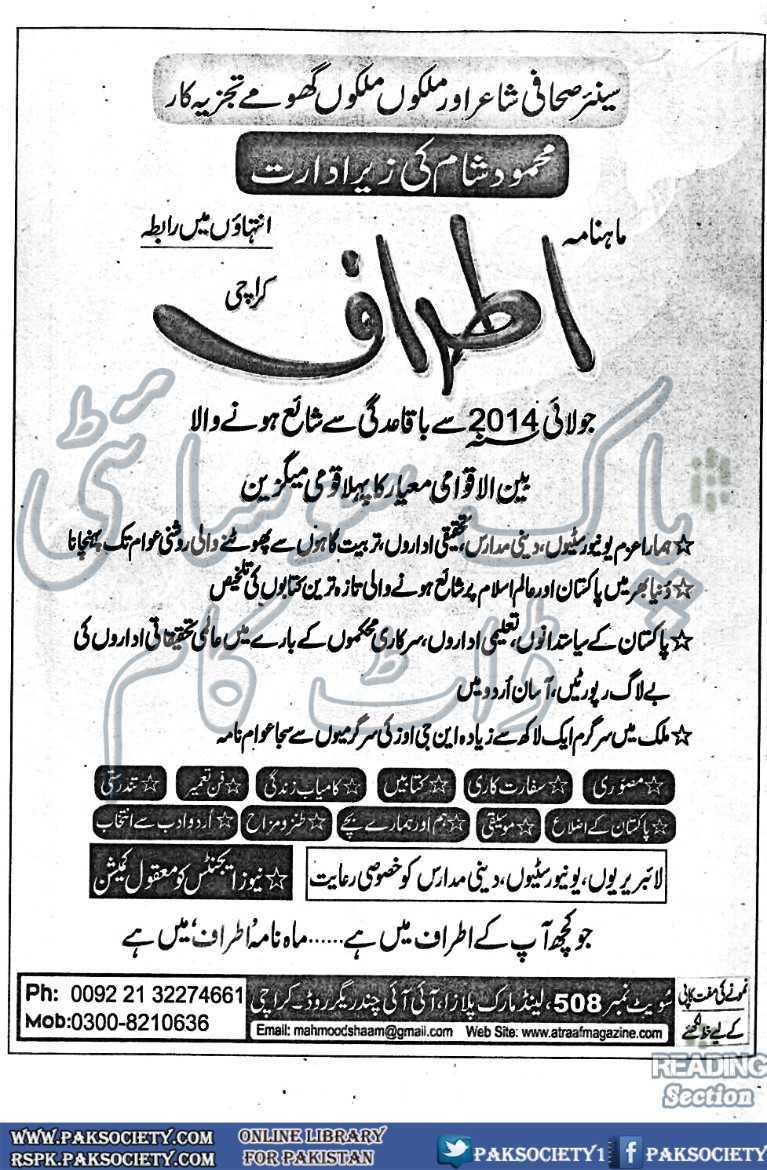 سینئر صحافی شاعر اور ملکوں ملکوں گھومے تجزیہ کار
محمود شام کی زیر ادارت
ماہنامہ
انتہاؤں میں رابطہ
اطراف
کراچی
جولائی 2014 سے باقاعدگی سے شائع ہونے والا
بین الاقوامی معیار کا پہلا قومی میگزین
☆ ہمارا عزم یونیورسٹیوں، دینی مدارس، تحقیقی اداروں، تربیت گاہوں سے پھوٹنے والی روشنی عوام تک پہنچانا
☆ دُنیا بھر میں پاکستان اور عالم اسلام پر شائع ہونے والی تازہ ترین کتابوں کی تلخیص
☆ پاکستان کے سیاستدانوں، تعلیمی اداروں، سرکاری محکموں کے بارے میں عالمی تحقیقاتی اداروں کی
بے لاگ رپورٹیں، آسان اُردو میں
☆ ملک میں سرگرم ایک لاکھ سے زیادہ این جی اوز کی سرگرمیوں سے سجا عوام نامہ
☆ مصوّری ☆ سفارت کاری ☆ کتابیں ☆ کامیاب زندگی ☆ فن تعمیر ☆ تندرستی
☆ پاکستان کے اضلاع ☆ موسیقی ☆ ہم اور ہمارے بچے ☆ طنز و مزاح ☆ اُردو ادب سے انتخاب
لائبریریوں، یونیورسٹیوں، دینی مدارس کو خصوصی رعایت
☆ نیوز ایجنٹس کو معقول کمیشن
جو کچھ آپ کے اطراف میں ہے......ماہ نامہ ’اطراف‘ میں ہے
نمونے کی مفت کاپی
کے لیے خط لکھئے
سُویٹ نمبر 508، لینڈ مارک پلازا، آئی آئی چندریگر روڈ۔ کراچی
Email: mahmoodshaam@gmail.com Web Site: www.atraafmagazine.com
Ph: 0092 21 32274661
Mob:0300-8210636
پاک سوسائٹی
ڈاٹ کام
READING
Section
WWW.PAKSOCIETY.COM
RSPK.PAKSOCIETY.COM
ONLINE LIBRARY
FOR PAKISTAN
PAKSOCIETY1
PAKSOCIETY